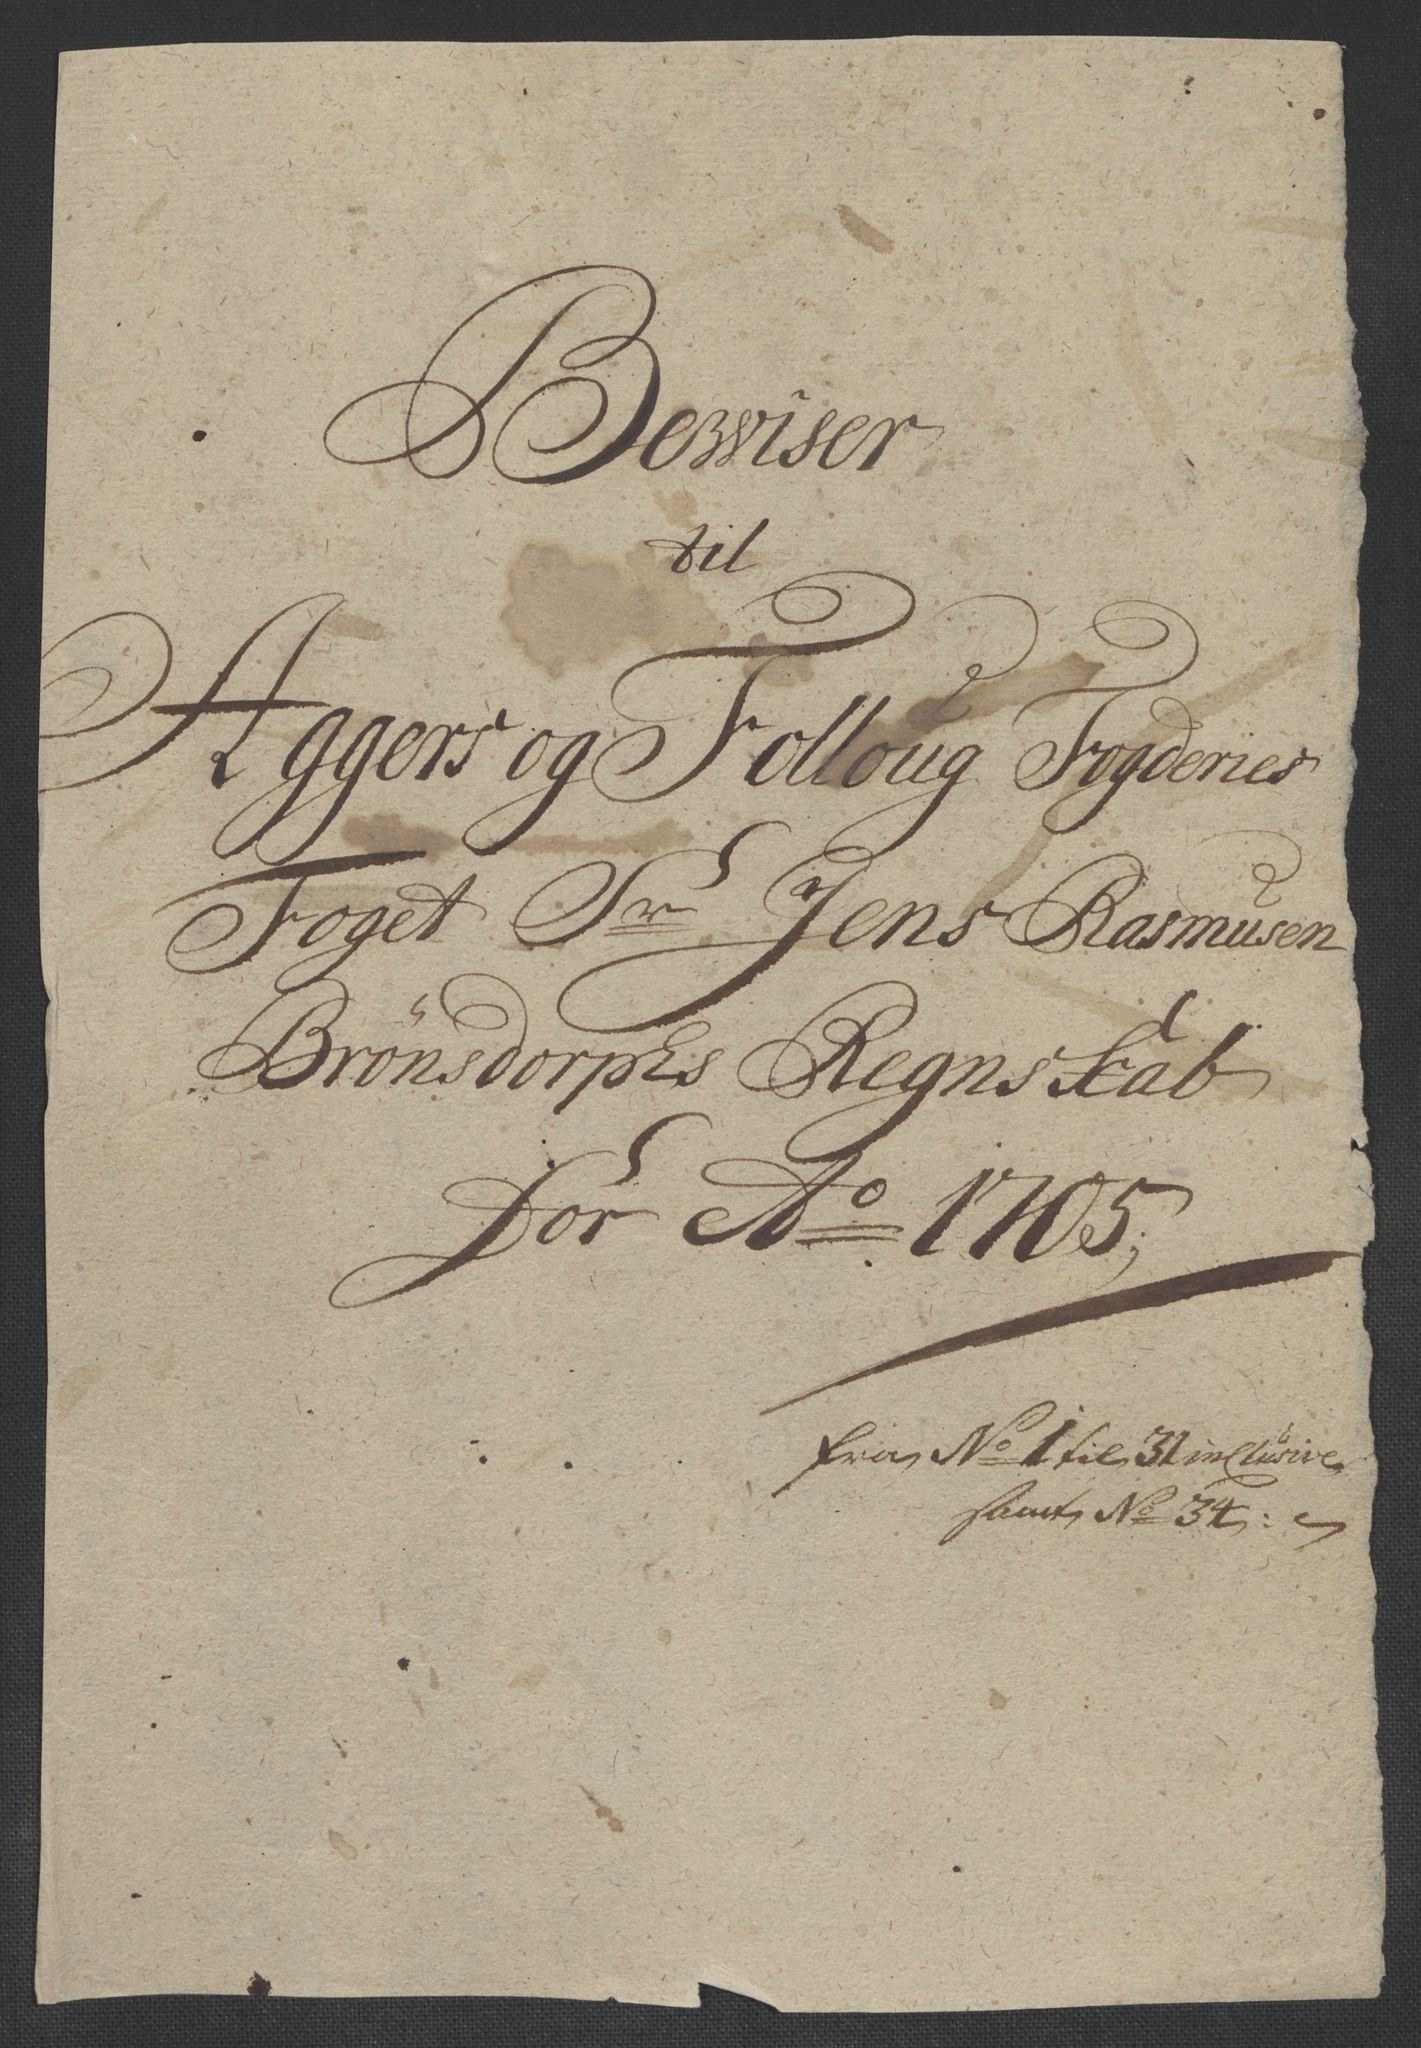 Bewiser
til
Aggers og Folloug Fogderies
Foget Sr Jens Rasmusen
Brönsdorphs Regnskab
for Ao 1705;
fra No 1 til 31 inclusive
samt No 34: